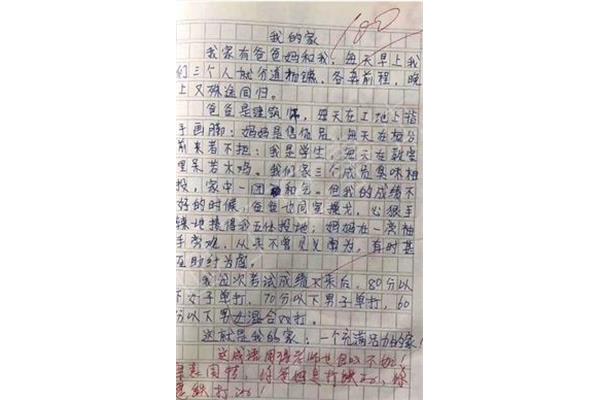 100
我的家
我家有爸爸妈和我，每天早上我
们三个人就分道扬镳，各奔前程，晚
上又殊途同归。
爸爸是建筑师，每天在工地上指
手画脚；妈妈是售货员，每天在柜台
前来者不拒；我是学生，每天在教室
里呆若木鸡。我们家三个成员臭味相
投，家中一团和气。但我的成绩不
好的时候，爸爸也同室操戈，心狠手
辣地揍得我五体投地；妈妈在一旁袖
手旁观，从来不曾见义勇为，有时甚
至助纣为虐。
我每次考试成绩下来后，80分以
下女子单打，70分以下男子单打，60
分以下男女混合双打。
这就是我的家，一个充满活力的家！
这成语用得老师也自叹不如！
爸是铁打的！